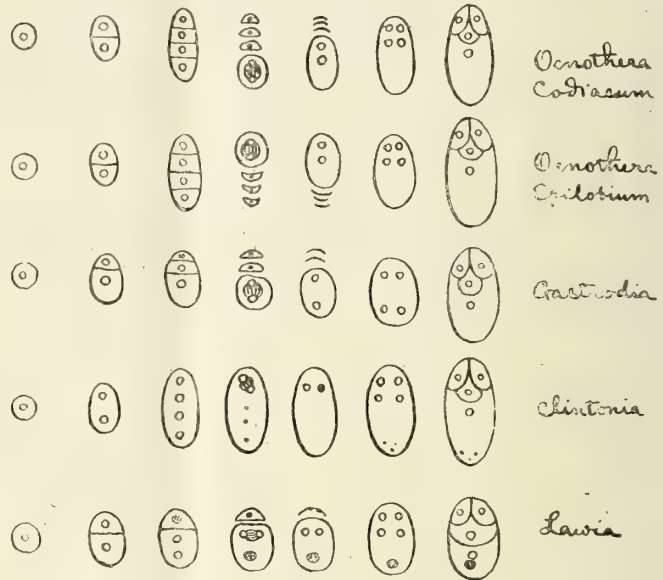 Oenothera
Codiaeum
Oenothera
Epilobium
Gastrodia
Clintonia
Lawia